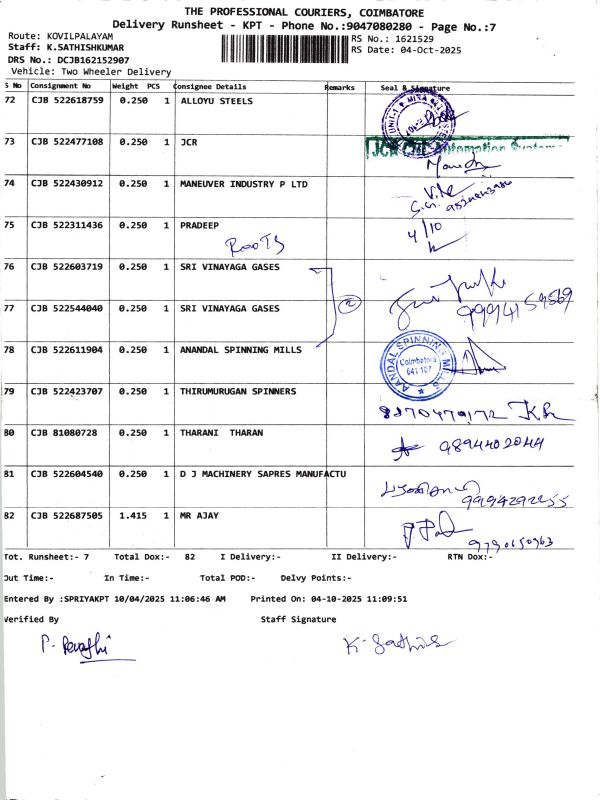 THE PROFESSIONAL COURIERS, COIMBATORE
Delivery Runsheet - KPT - Phone No.:9047080280 - Page No.:7
Route: KOVILPALAYAM RS No.: 1621529
Staff: K.SATHISHKUMAR RS Date: 04-Oct-2025
DRS No.: DCJB162152907
Vehicle: Two Wheeler Delivery
S No Consignment No Weight PCS Consignee Details Remarks Seal & Signature
72 CJB 522618759 0.250 1 ALLOYU STEELS
UNIT-1
73 CJB 522477108 0.250 1 JCR JCR CNC Automation Systems
74 CJB 522430912 0.250 1 MANEUVER INDUSTRY P LTD
75 CJB 522311436 0.250 1 PRADEEP 4/10
ROOTS
76 CJB 522603719 0.250 1 SRI VINAYAGA GASES
2
77 CJB 522544040 0.250 1 SRI VINAYAGA GASES 9994159569
78 CJB 522611904 0.250 1 ANANDAL SPINNING MILLS AANDAL SPINNING MILLS Coimbatore 641 107
79 CJB 522423707 0.250 1 THIRUMURUGAN SPINNERS
80 CJB 81080728 0.250 1 THARANI THARAN 9894402044
81 CJB 522604540 0.250 1 D J MACHINERY SAPRES MANUFACTU
82 CJB 522687505 1.415 1 MR AJAY
9790150963
Tot. Runsheet:- 7 Total Dox:- 82 I Delivery:- II Delivery:- RTN Dox:-
Out Time:- In Time:- Total POD:- Delvy Points:-
Entered By :SPRIYAKPT 10/04/2025 11:06:46 AM Printed On: 04-10-2025 11:09:51
Verified By Staff Signature
P. Revathi K. Sathish